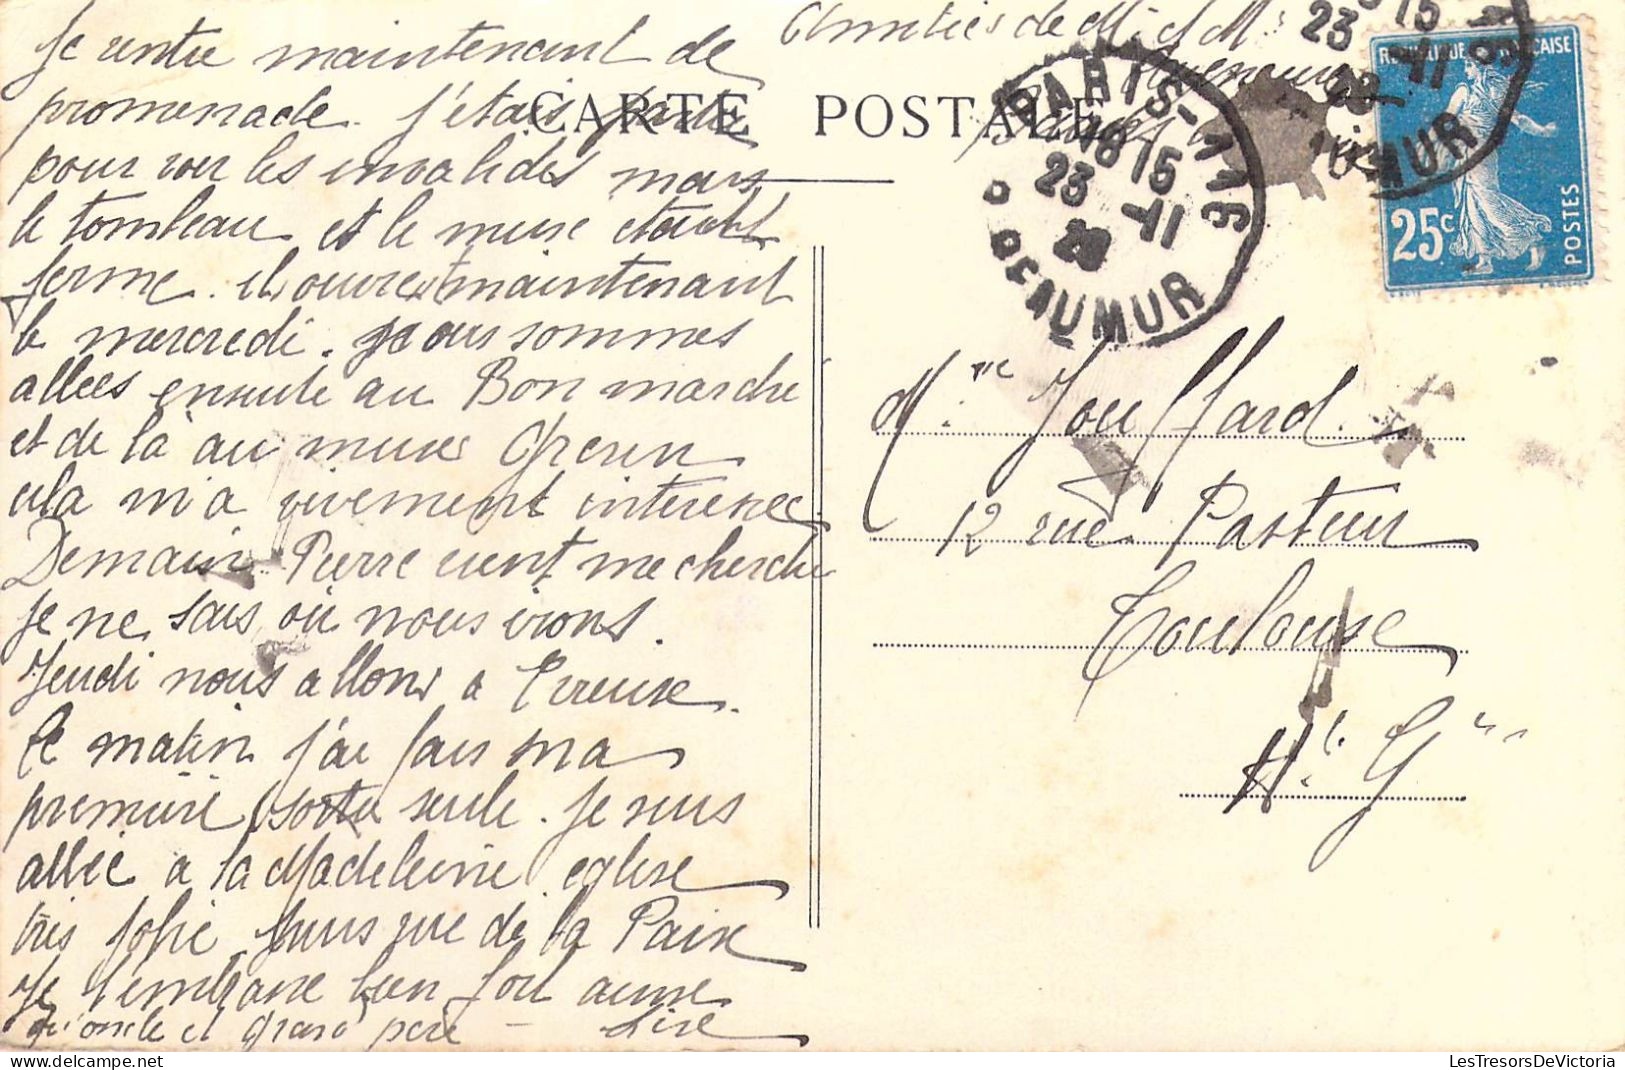 Je rentre maintenant de
promenade. j'étais partie
pour voir les invalides mais
le tombeau et le muse etaient
ferme. ils ouvrent maintenant
le mercredi. nous sommes
allees ensuite au Bon marche
et de là au muse Grevin
cela m'a vivement interessee
Demain Pierre vient me cherche
je ne sais où nous irons.
Jeudi nous allons a
Ce matin j'ai fais ma
premiere sortie seule. Je suis
allée a la Madeleine eglise
très jolie puis rue de la Paix
Je t'embrasse bien fort
et grand pere — Lise
Amitiés de M. et Mme
CARTE POSTALE
PARIS-
16 15
23 -11
28
REAUMUR
23 15
-11
REAUMUR
REPUBLIQUE FRANÇAISE
25c
POSTES
Mme Jouffard.
12 rue Pasteur
Toulouse
Hte Gne
LesTresorsDeVictoria